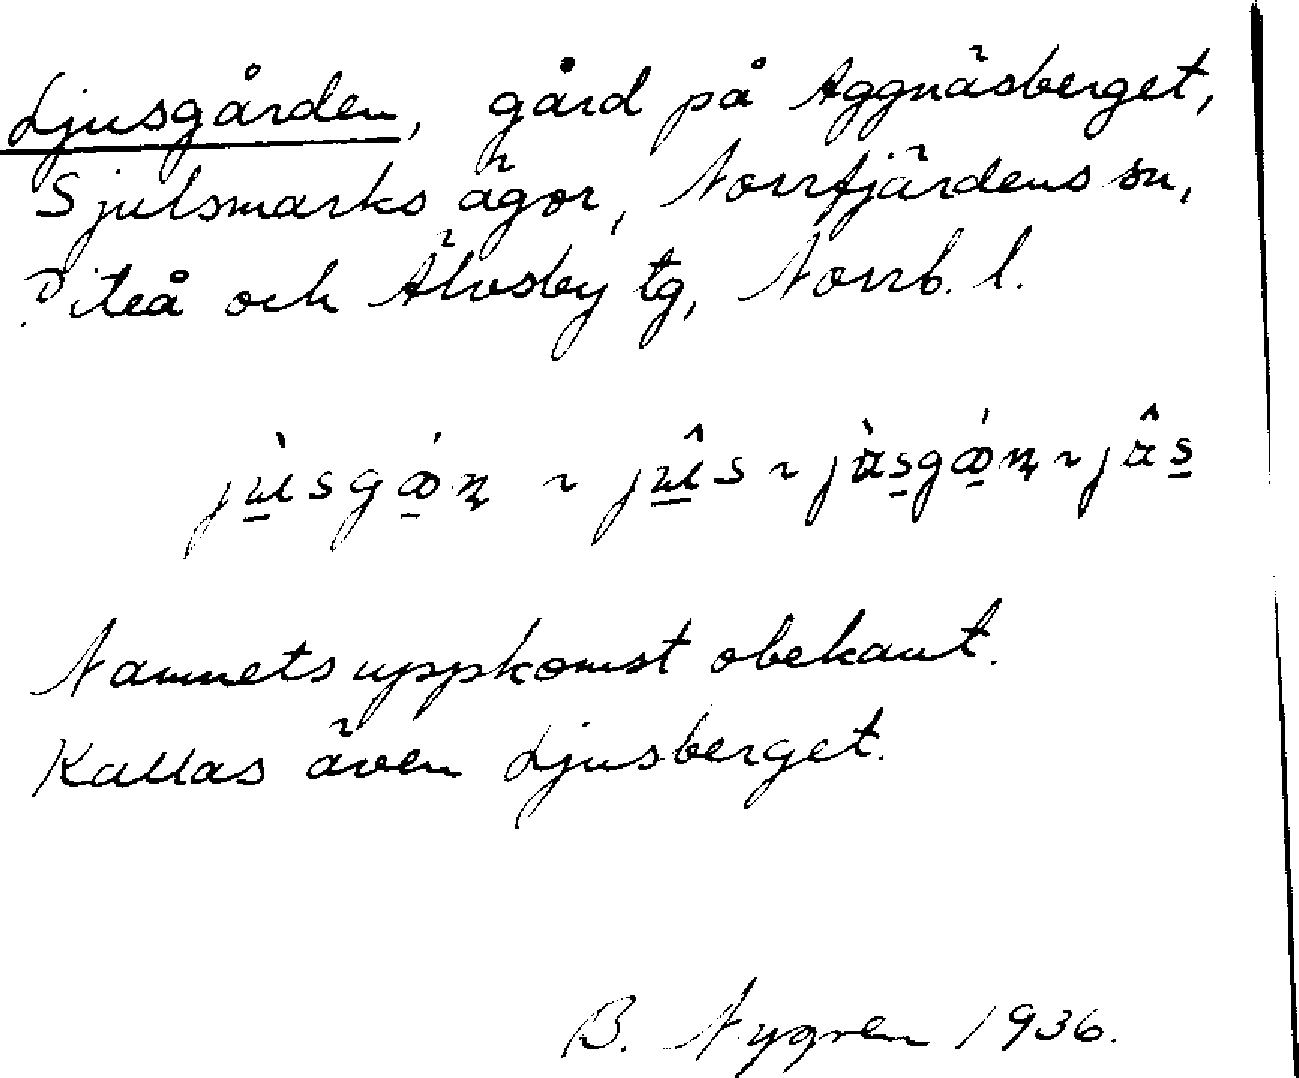 Ljusgården, gård på Aggnäsberget,
Sjulsmarks ägor, Norrfjärdens sn,
Piteå och Älvsby tg, Norrb. l.
Namnets uppkomst obekant.
Kallas även Ljusberget.
B. Nygren 1936.